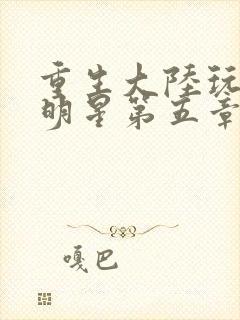 重生大陸玩
明星第五章
嘎巴